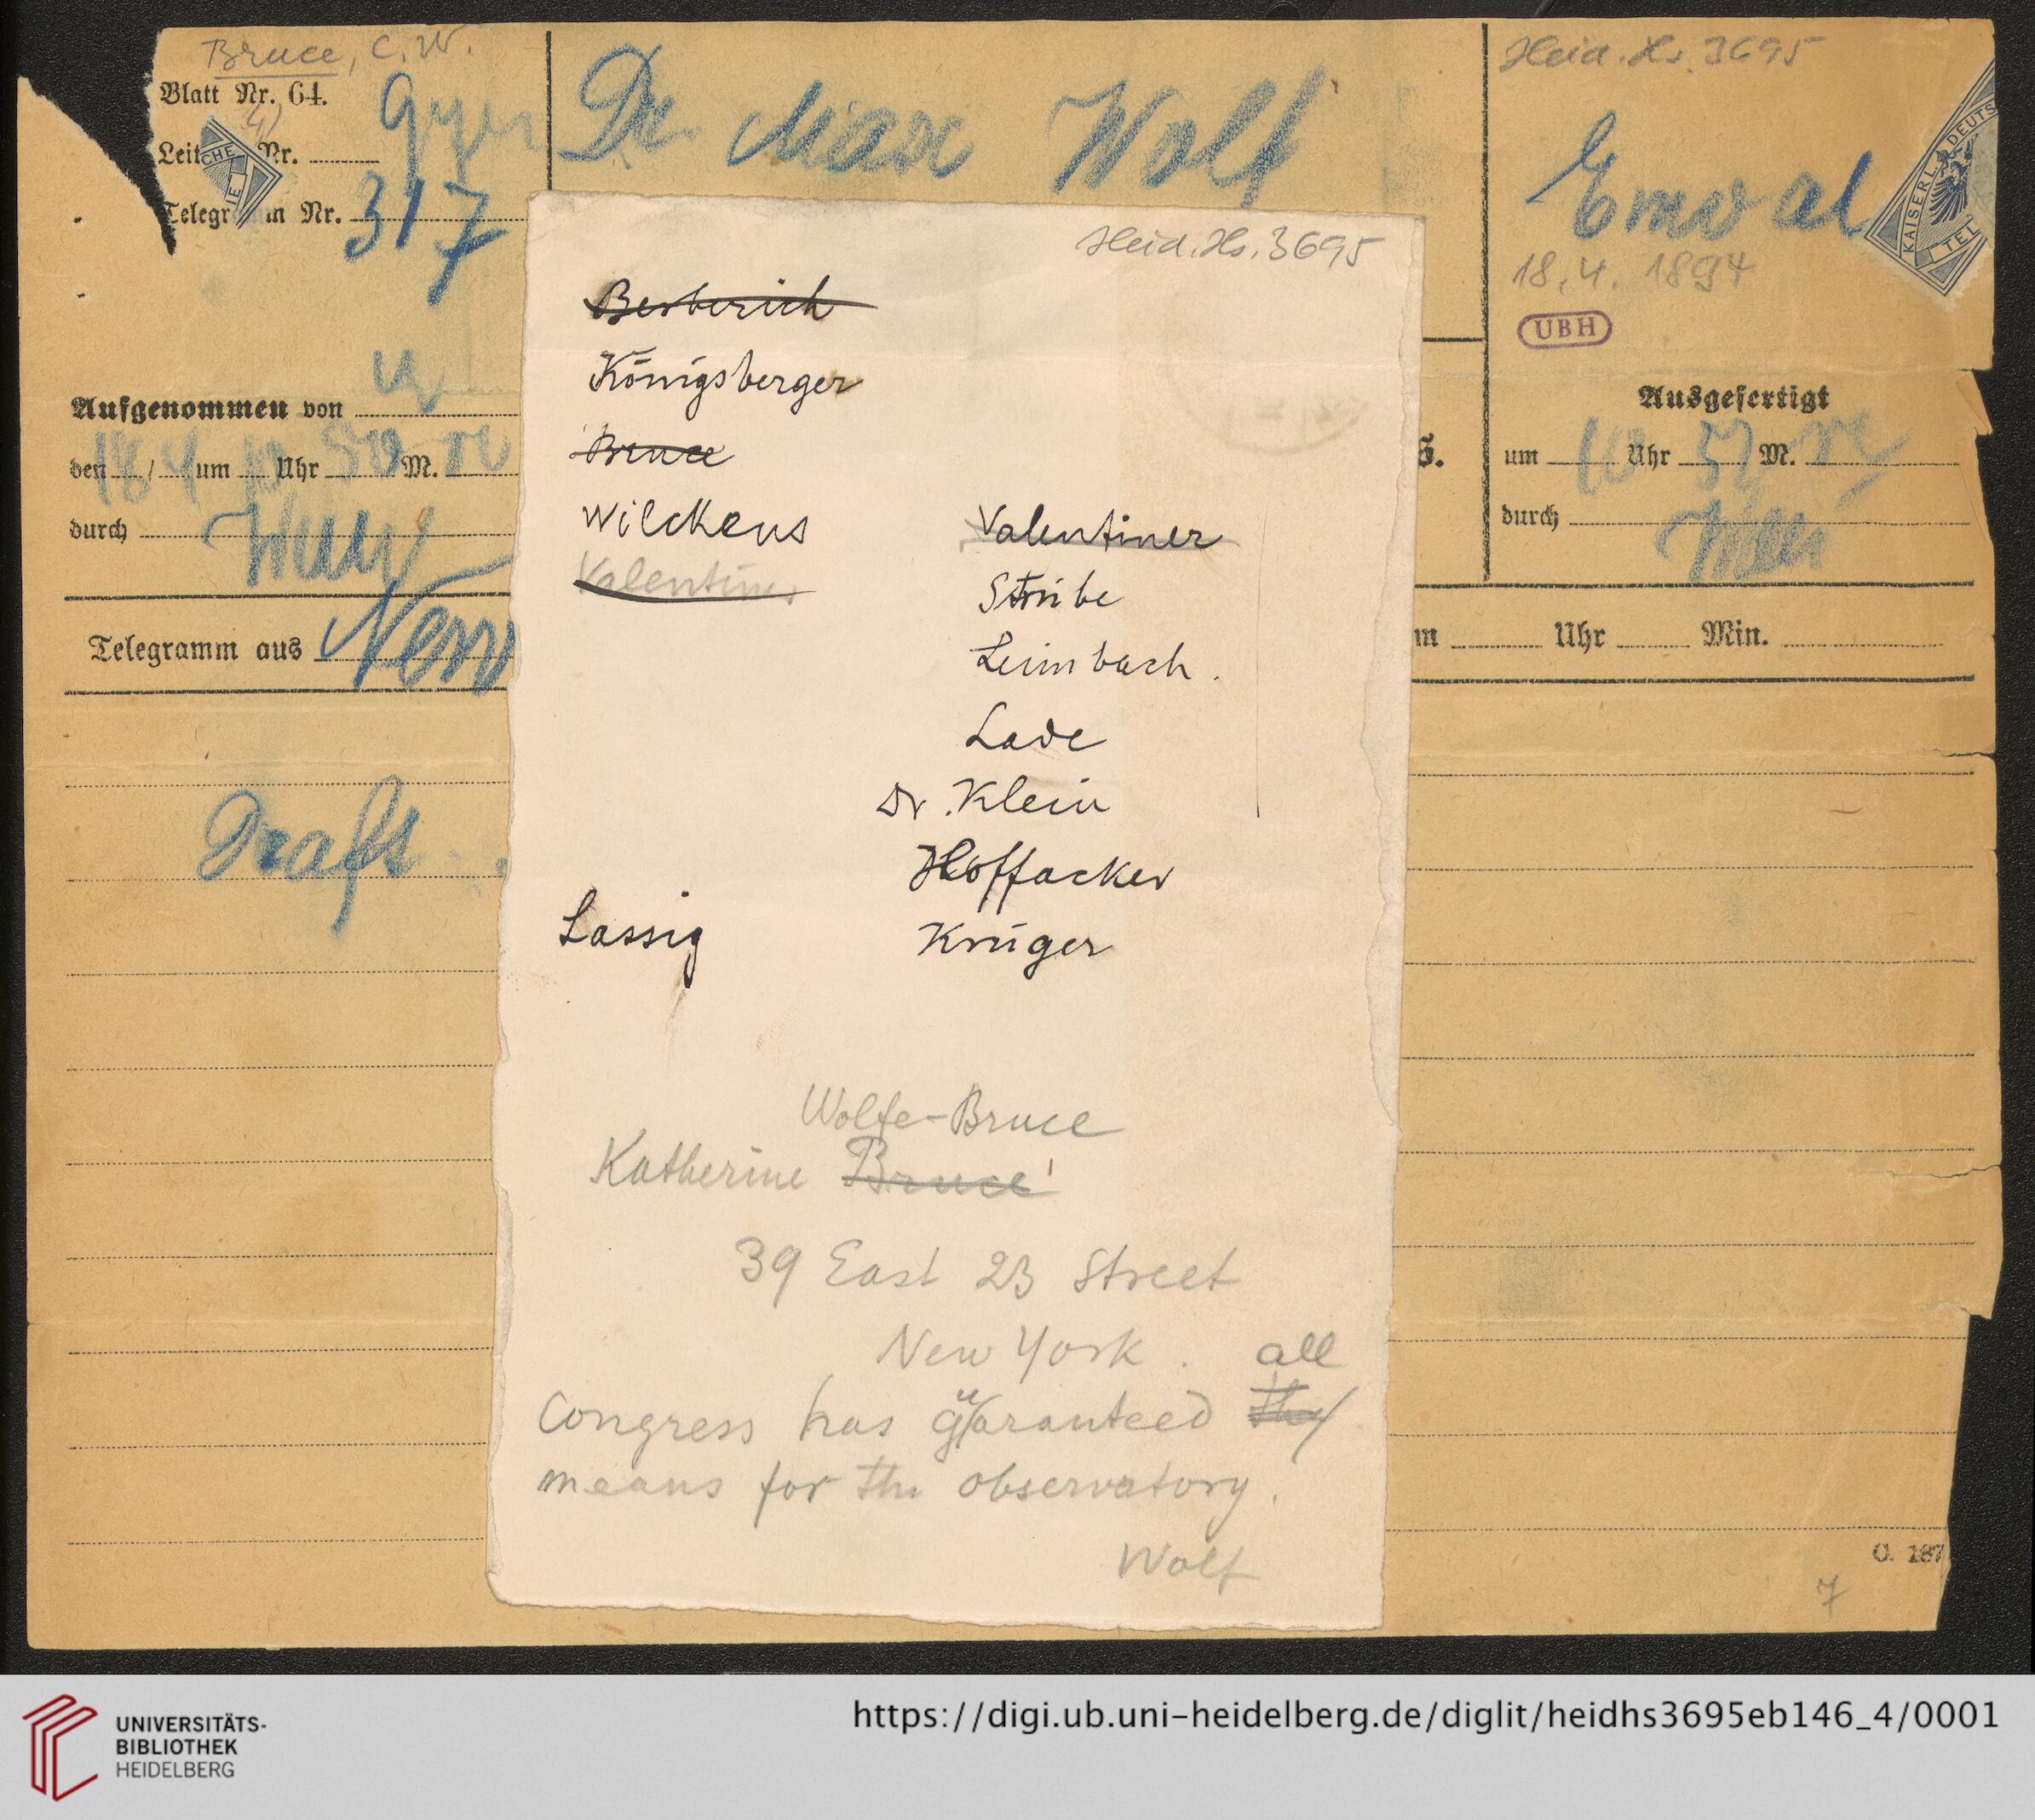 Bruce, C. W.
Heid. Hs. 3695
Blatt Nr. 64.
Dr Max Wolf
Leit Nr.
CHE
IE
Telegramm Nr. 317
KAISERL. DEUTS
TEL
18. 4. 1894
UBH
Aufgenommen von
den / um Uhr M.
durch
Telegramm aus New
Draft
Ausgefertigt
um Uhr M.
durch
S.
m Uhr Min.
O. 187
7
Heid. Hs. 3695
Berberich
Königsberger
Bruce
Wilckens
Valentiner
Valentiner
Strübe
Leimbach.
Lade
Dr. Klein
Hoffacker
Lassig
Krüger
Wolfe-Bruce
Katherine Bruce
39 East 23 Street
New York.
all
Congress has guaranteed the
means for the observatory.
Wolf
UNIVERSITÄTS-
BIBLIOTHEK
HEIDELBERG
https://digi.ub.uni-heidelberg.de/diglit/heidhs3695eb146_4/0001